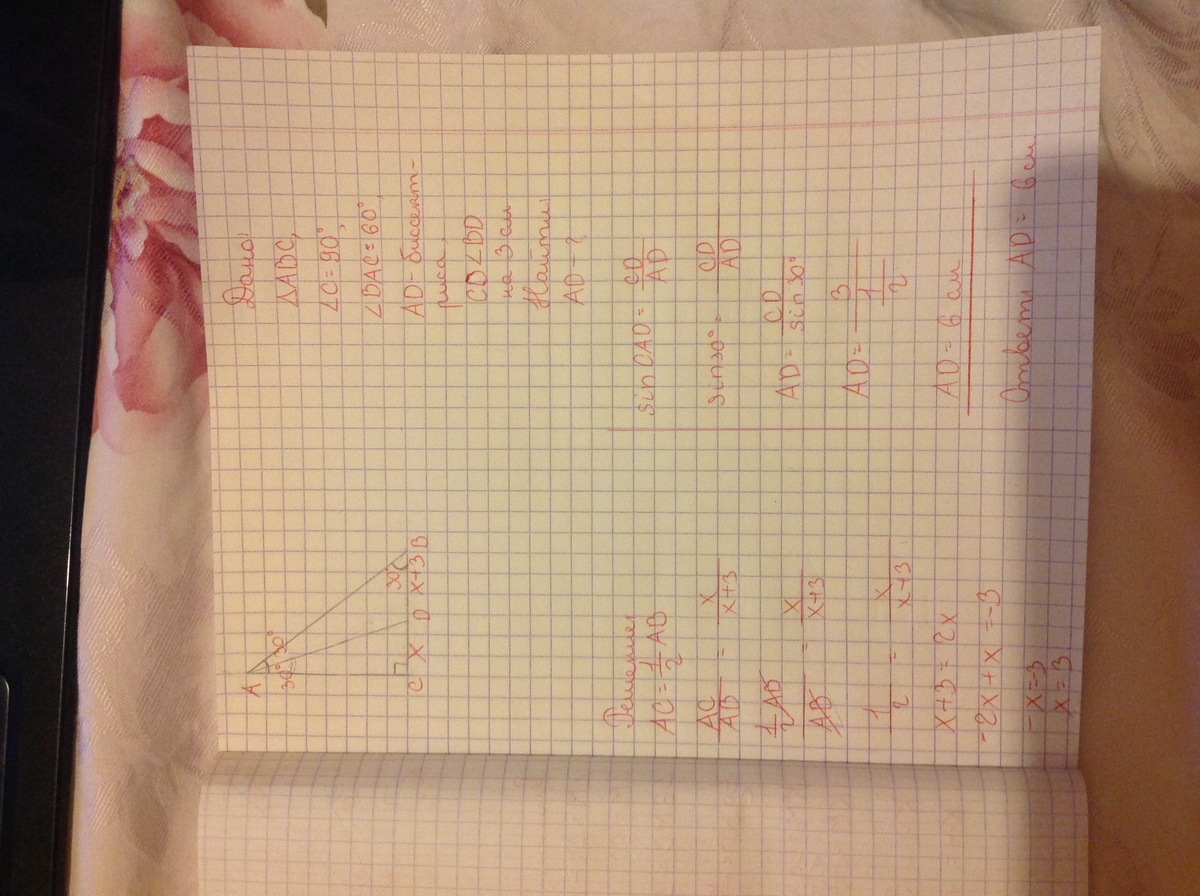 A
30° 30°
30
C x D x+3 B
Дано:
△ABC,
∠C = 90°,
∠BAC = 60°,
AD - биссект-
риса,
CD < BD
на 3 см
Найти:
AD - ?
Решение:
AC = 1/2 AB
AC/AB = x/(x+3)
(1/2 AB)/AB = x/(x+3)
1/2 = x/(x+3)
x+3 = 2x
-2x + x = -3
-x = -3
x = 3
sin CAD = CD/AD
sin 30° = CD/AD
AD = CD/sin 30°
AD = 3/(1/2)
AD = 6 см
Ответ: AD = 6 см